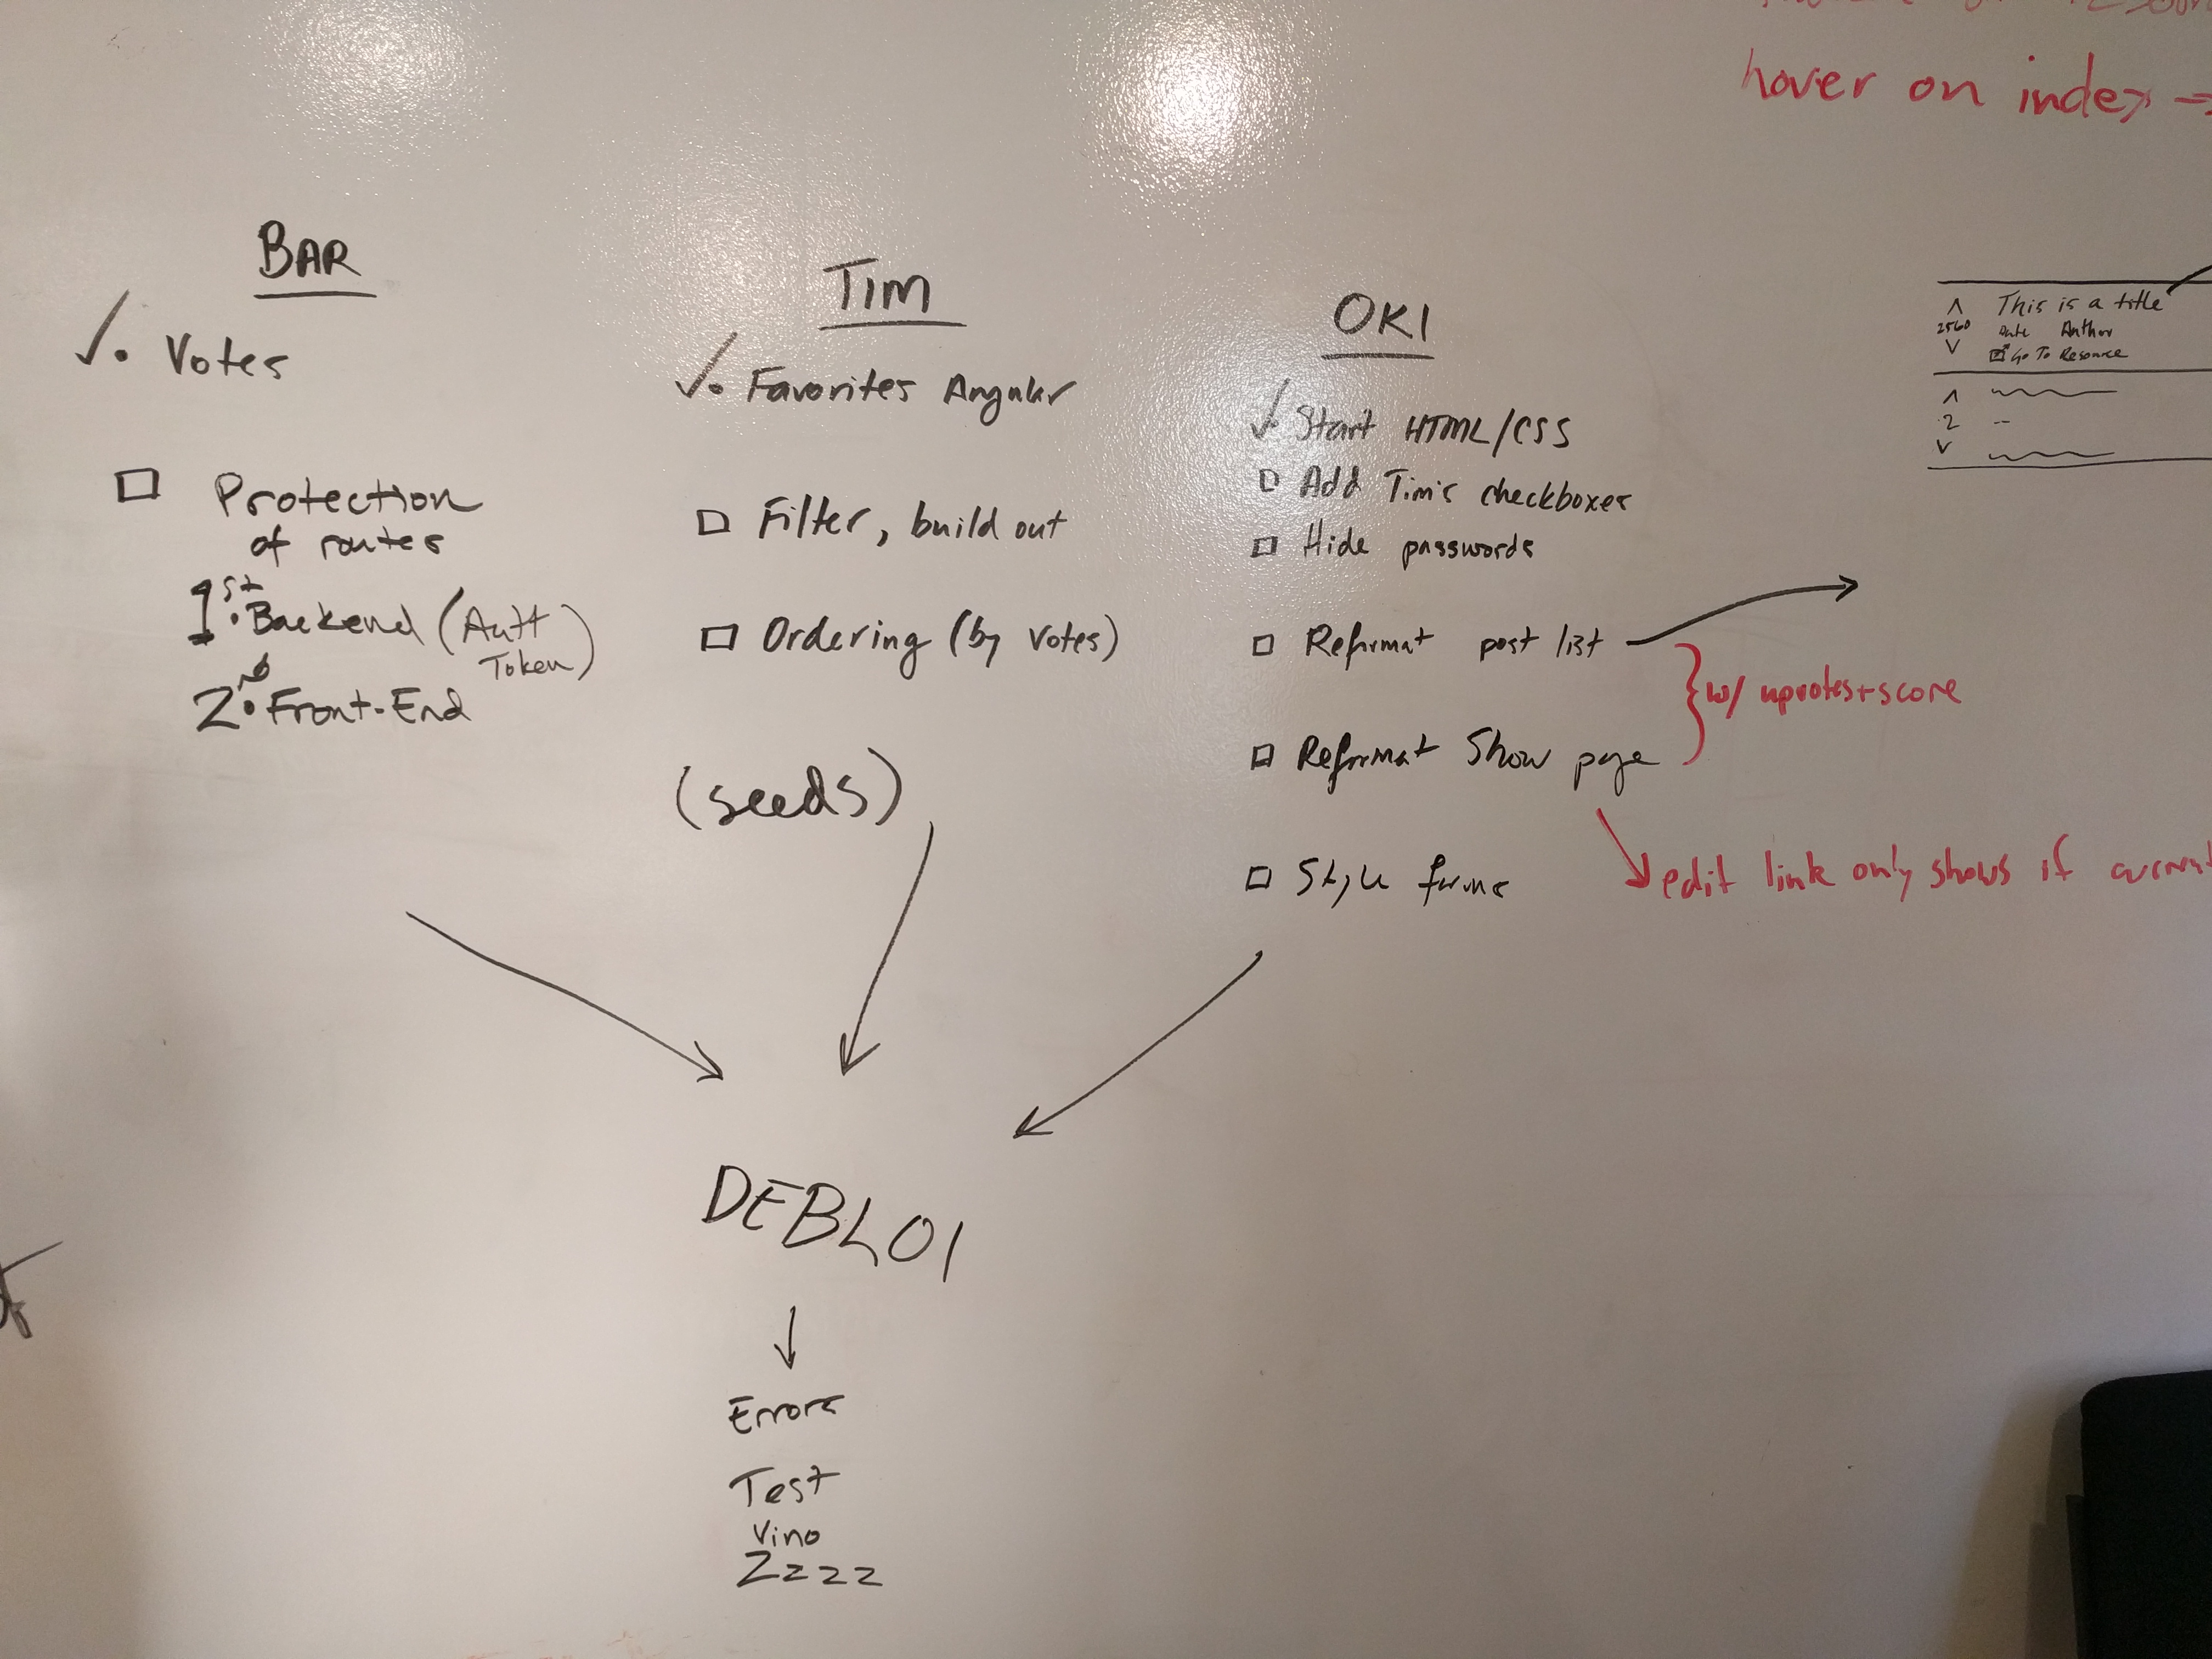 hover on index →
BAR
✓. Votes
□ Protection
of routes
1st. Backend (Auth
Token)
2nd. Front-End
TIM
✓. Favorites Angular
□ Filter, build out
□ Ordering (by votes)
(seeds)
OKI
✓ Start HTML/CSS
□ Add Tim's checkboxes
□ Hide passwords
□ Reformat post list
□ Reformat Show page
w/ upvotes+score
edit link only shows if current
□ Style forms
^ This is a title
2560 Date Author
v Go To Resource
^
2 --
v
DEBLOI
↓
Errors
Test
Vino
Zzzz